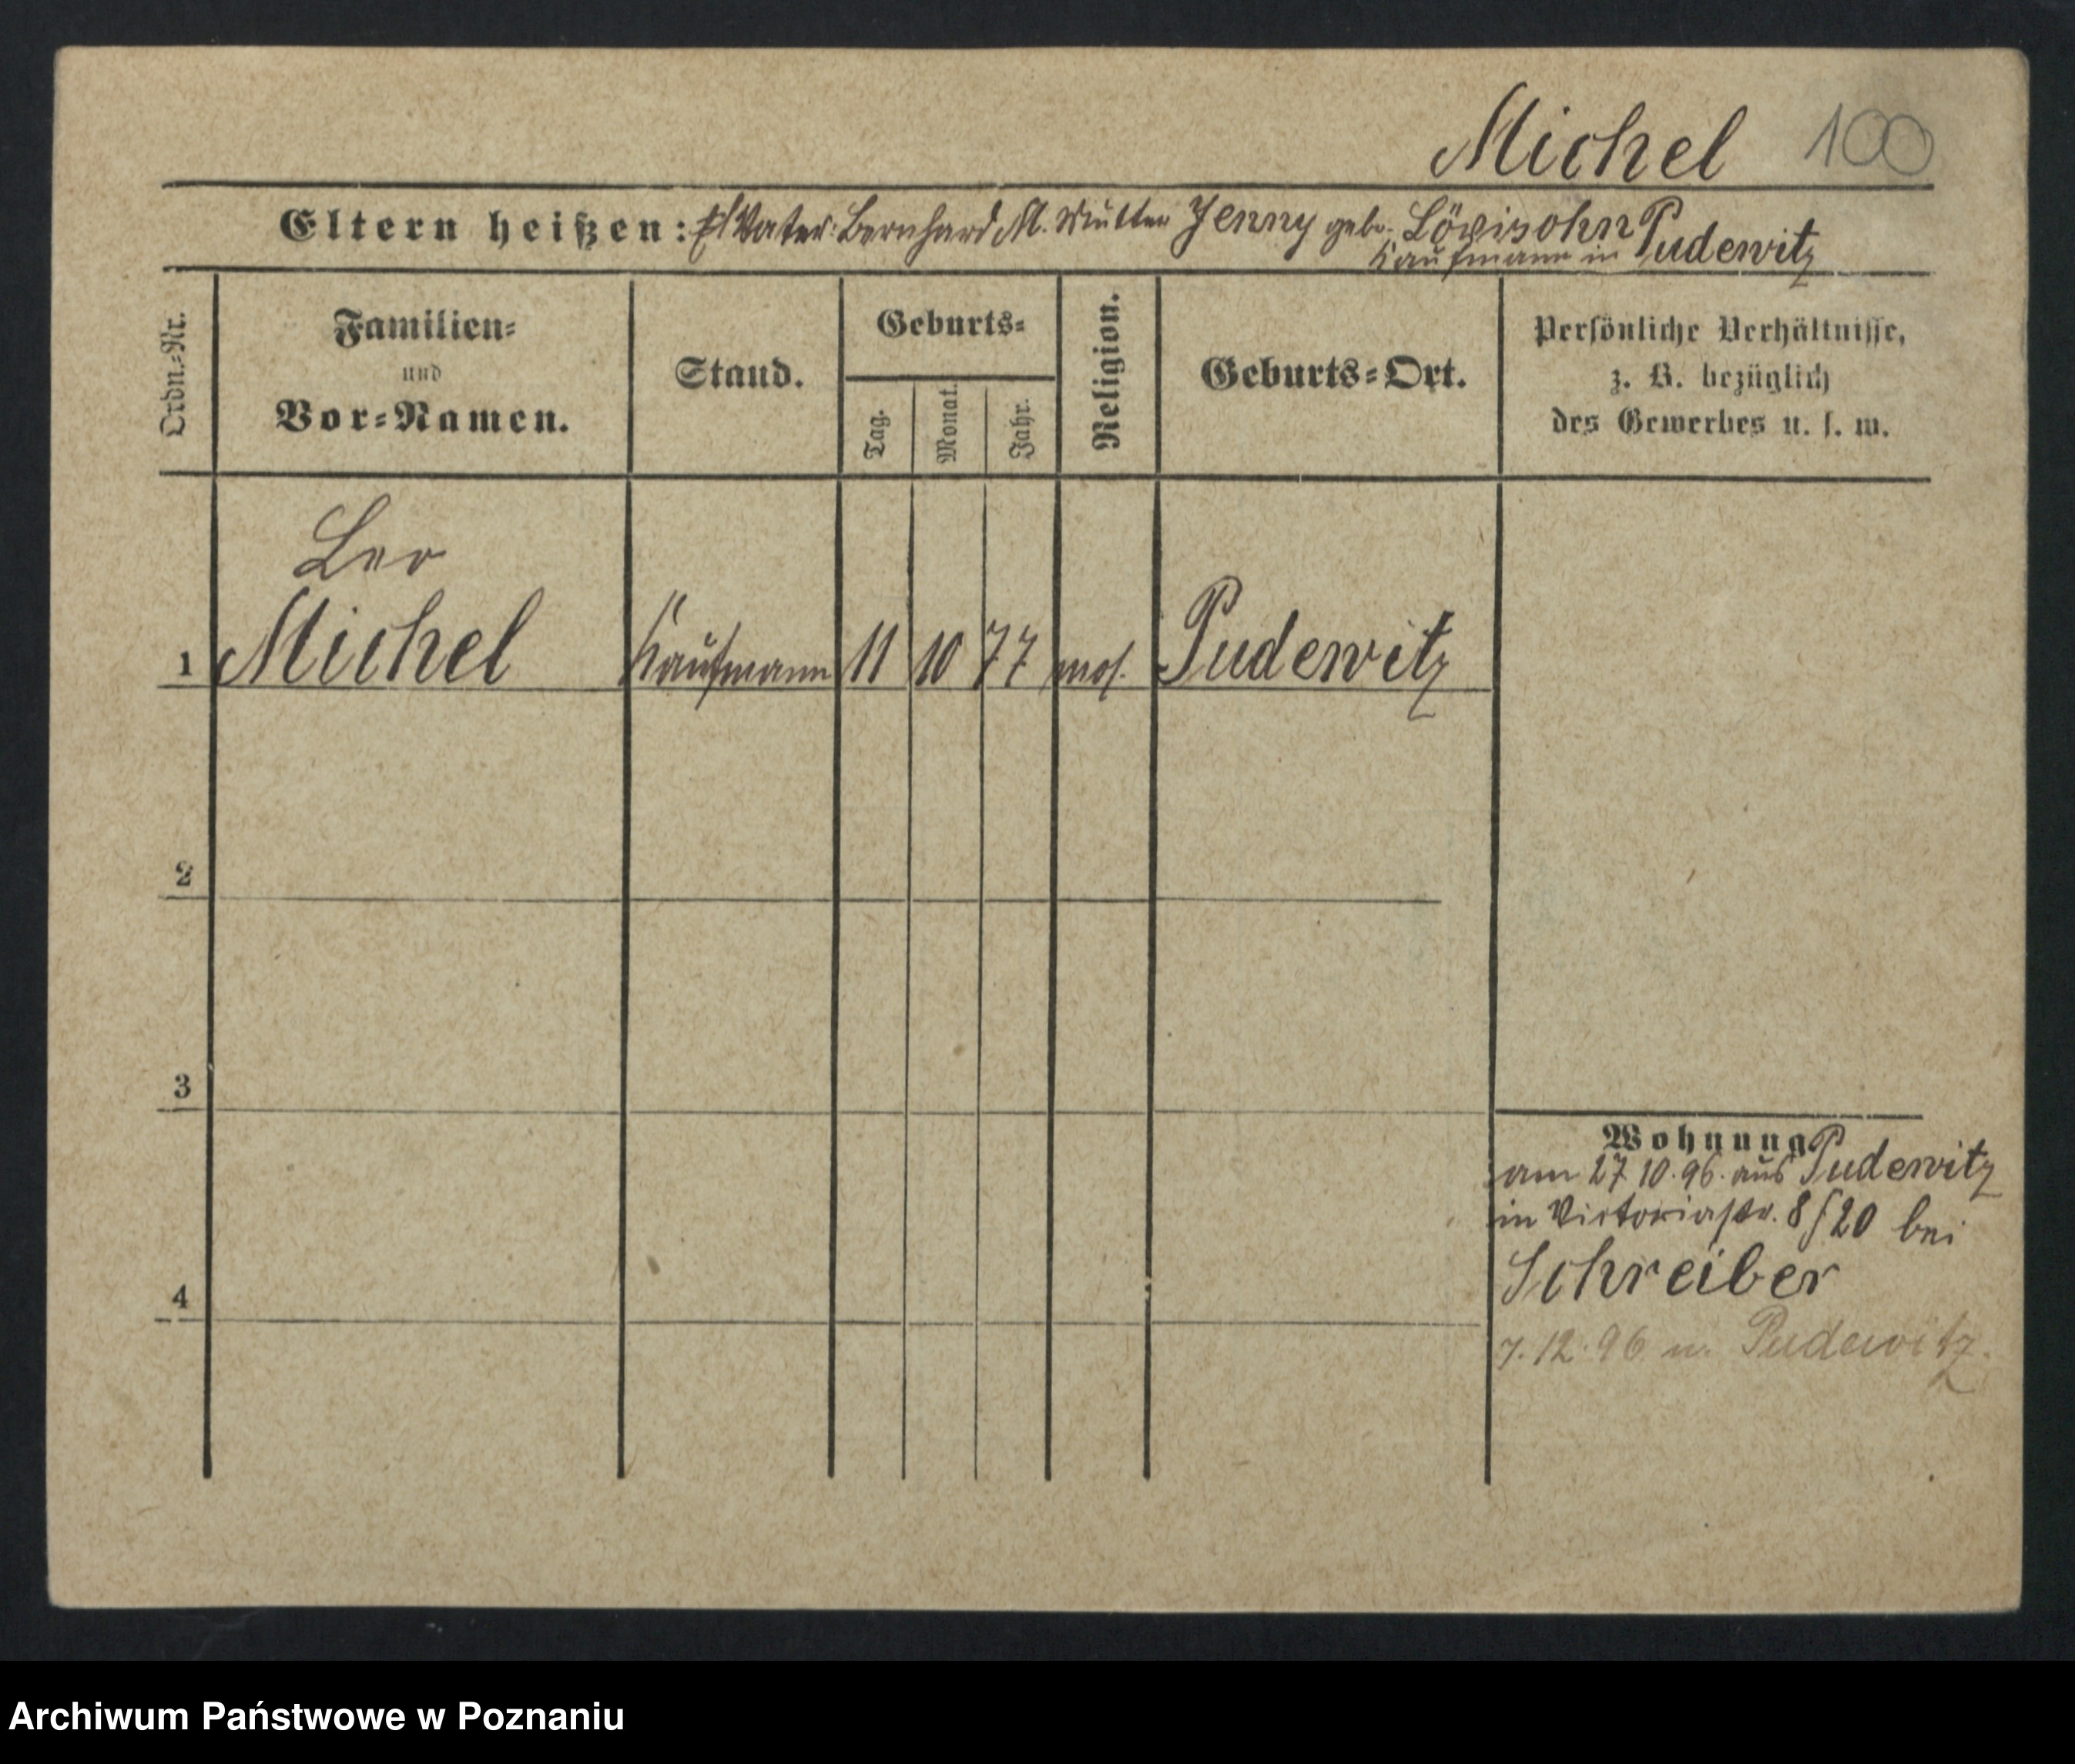 Michel 100
Eltern heißen: Vater: Bernhard M. Mutter Jenny geb. Lövisohn
Kaufmann in Pudewitz
Ordn.-Nr.
Familien-
und
Vor-Namen.
Stand.
Geburts-
Tag.
Monat.
Jahr.
Religion.
Geburts-Ort.
Persönliche Verhältnisse,
z. B. bezüglich
des Gewerbes u. s. w.
Leo
1 Michel Kaufmann 11 10 77 mos. Pudewitz
2
3
4
Wohnung
am 27.10.96. aus Pudewitz
in Victoriastr. 8/20 bei
Schreiber
7.12.96 n. Pudewitz.
Archiwum Państwowe w Poznaniu